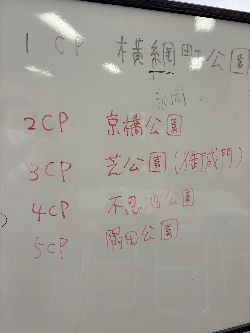 1 CP 横網町公園
2CP 京橋公園
3CP 芝公園(御成門)
4CP 不忍池公園
5CP 隅田公園